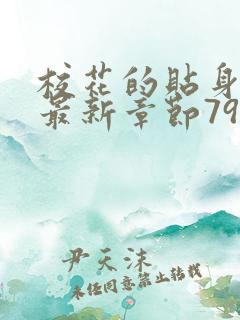 校花的贴身
最新章节79
尹天沫
未经同意禁止转载